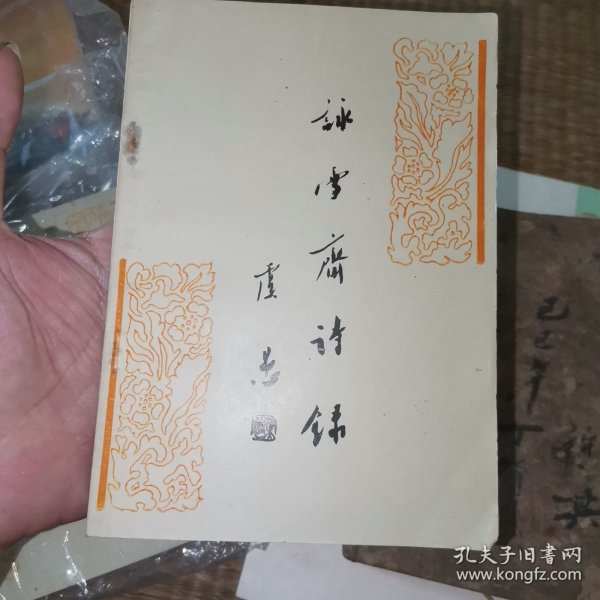 詠雪齋詩錄
虞愚
己巳年
孔夫子旧书网
www.kongfz.com